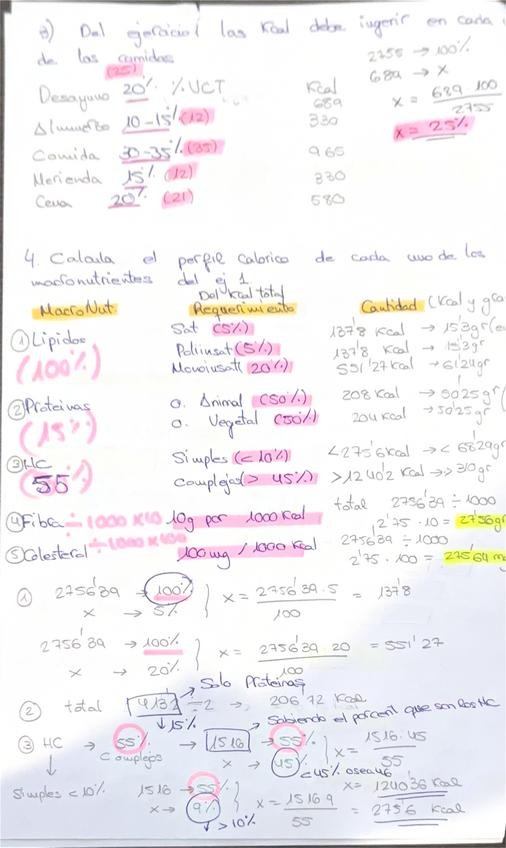 3) Del ejercicio 1 las Kcal debe ingerir en cada
de las comidas
(25)
Desayuno 20% %VCT Kcal 689
Almuerzo 10-15% (12) 330
Comida 30-35% (35) 965
Merienda 15% (12) 330
Cena 20% (21) 580
2755 → 100%
689 → x
x = 689 · 100 / 2755
x = 25%
4. Calcula el perfil calorico de cada uno de los
macronutrientes del ej 1
Del Kcal total
MacroNut. Requerimiento Cantidad (Kcal y gra
① Lipidos Sat (5%) 137'8 Kcal → 15'3gr
(100%) Poliinsat (5%) 137'8 Kcal → 15'3gr
Monoinsat (20%) 551'27 Kcal → 61'24gr
② Proteinas o. Animal (50%) 208 Kcal → 50'25gr
(15%) o. Vegetal (50%) 204 Kcal → 50'25gr
③ HC Simples (<10%) <275'6 Kcal → < 68'29gr
(55%) Complejos (> 45%) >1240'2 Kcal → > 310gr
④ Fibra ÷ 1000 x 10 10g por 1000 Kcal total 2756'39 ÷ 1000
2'75 · 10 = 27'56gr
⑤ Colesterol ÷ 1000 x 100 100mg / 1000 Kcal 2756'39 ÷ 1000
2'75 · 100 = 275'64 m
① 2756'39 → 100% x = 2756'39 · 5 / 100 = 137'8
x → 5%
2756'39 → 100% x = 2756'39 · 20 / 100 = 551'27
x → 20%
→ Solo Proteinas
② total 413'2 ÷ 2 → 206'72 Kcal
↓ 15% → Sabiendo el porcent que son los HC
③ HC → 55% → 1516 → 55% x = 1516 · 45 / 55
↓ Complejos x → 45%
<45% osea 46
x = 1240'36 Kcal
Simples < 10% 1516 → 55% x = 1516 · 9 / 55 = 275'6 Kcal
x → 9%
↓ > 10%